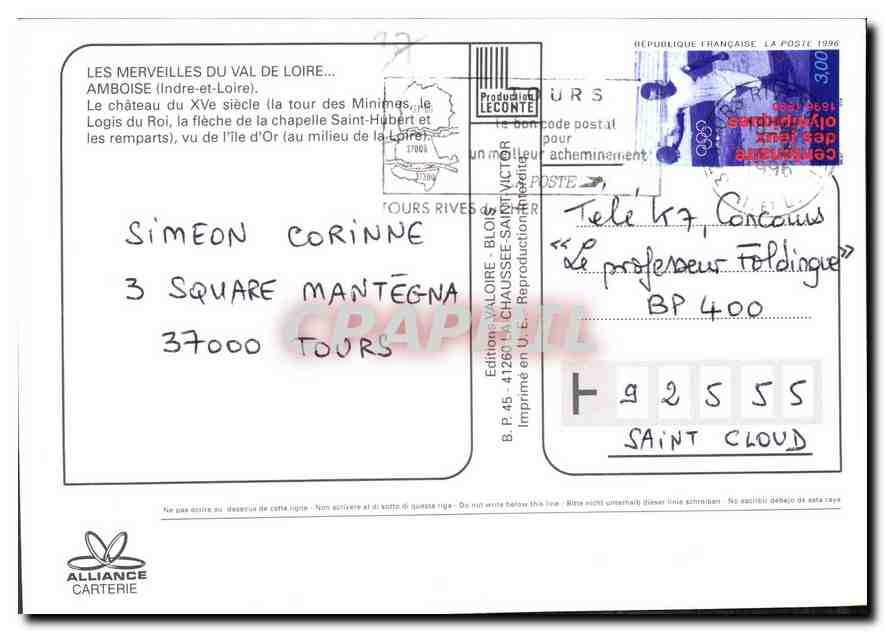 RÉPUBLIQUE FRANÇAISE LA POSTE 1996
3,00
centenaire
des jeux
olympiques
1896 1996
LES MERVEILLES DU VAL DE LOIRE...
AMBOISE (Indre-et-Loire).
Le château du XVe siècle (la tour des Minimes, le
Logis du Roi, la flèche de la chapelle Saint-Hubert et
les remparts), vu de l'île d'Or (au milieu de la Loire).
37
Production
LECONTE
TOURS
le bon code postal
pour
un meilleur acheminement
LA POSTE
37000
37200
TOURS RIVES du CHER
1996
SIMEON CORINNE
3 SQUARE MANTÉGNA
37000 TOURS
CRAPHIL
Editions VALOIRE - BLOIS
B. P. 45 - 41260 LA CHAUSSEE-SAINT-VICTOR
Imprimé en U. E. - Reproduction interdite
Télé K7, Concours
"Le professeur Foldingue"
BP 400
92555
SAINT CLOUD
Ne pas écrire au dessous de cette ligne - Non scrivere al di sotto di questa riga - Do not write below this line - Bitte nicht unterhalb dieser linie schreiben - No escribir debajo de esta raya
ALLIANCE
CARTERIE